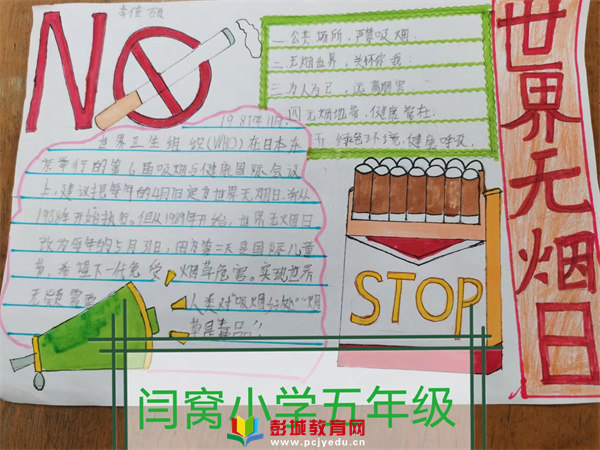 NO
李佳
一 公共场所,严禁吸烟
二 无烟世界,关怀你我
三 为人为己,远离烟害
四 无烟地带,健康常在
五 健康呼吸。
世界无烟日
1987年11月,
世界卫生组织(WHO)在日本东
京举行的第6届吸烟与健康国际会议
上,建议把每年的4月7日定为世界无烟日,并从
1988年开始执行。但从1989年开始,世界无烟日
改为每年的5月31日,因为第二天是国际儿童
节,希望下一代免受烟草危害。实现世界
无烟需要
人类对“吸烟 “烟
草是毒品”!
STOP
闫窝小学五年级
彭城教育网
www.pcjyedu.cn